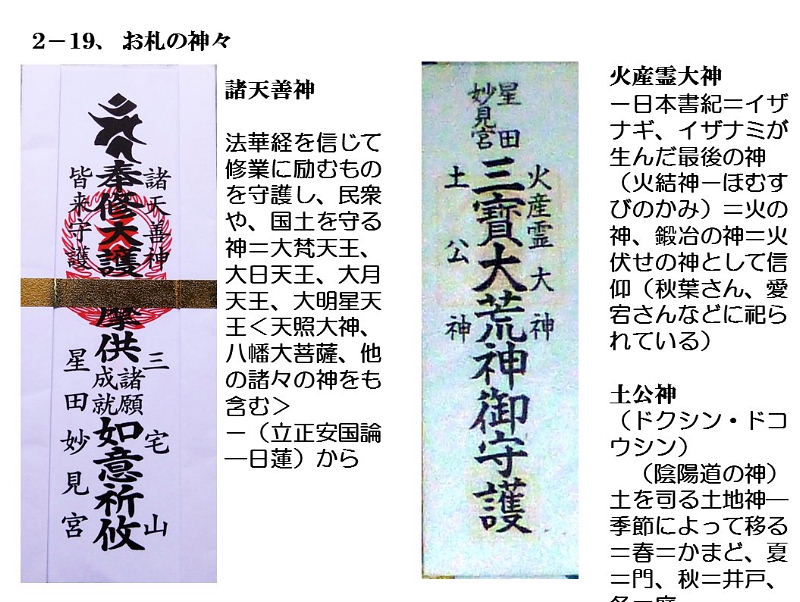 2－19、 お札の神々
諸天善神
皆来守護
奉修大護摩供
諸願
成就
如意祈攸
三宅山
星田妙見宮
諸天善神
法華経を信じて
修業に励むもの
を守護し、民衆
や、国土を守る
神＝大梵天王、
大日天王、大月
天王、大明星天
王＜天照大神、
八幡大菩薩、他
の諸々の神をも
含む＞
－（立正安国論
―日蓮）から
星田
妙見宮
火産霊大神
三寶大荒神御守護
土公神
火産霊大神
－日本書紀＝イザ
ナギ、イザナミが
生んだ最後の神
（火結神－ほむす
びのかみ）＝火の
神、鍛冶の神＝火
伏せの神として信
仰（秋葉さん、愛
宕さんなどに祀ら
れている）
土公神
（ドクシン・ドコ
ウシン）
（陰陽道の神）
土を司る土地神―
季節によって移る
＝春＝かまど、夏
＝門、秋＝井戸、